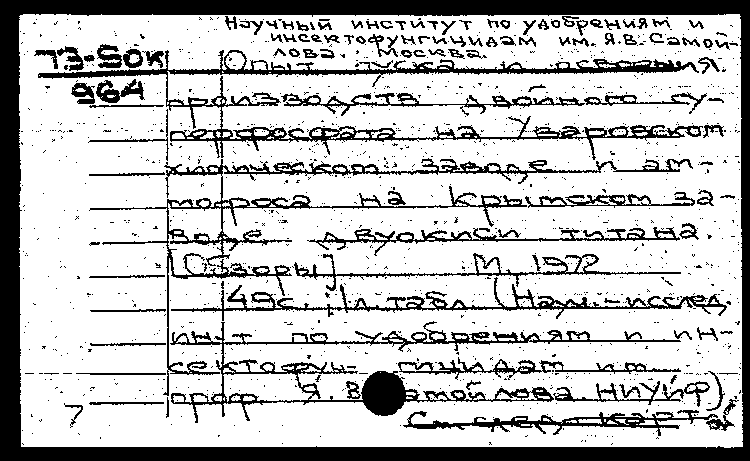 Научный институт по удобрениям и
инсектофунгицидам им. Я.В. Самой-
лова. Москва.
73-50к
964
Опыт пуска и освоения
производств двойного су-
перфосфата на Уваровском
химическом заводе и ам-
мофоса на Крымском за-
воде двуокиси титана.
[Обзоры] М., 1972
49с.; 1 л. табл. (Науч.-исслед.
ин-т по удобрениям и ин-
сектофун- гицидам им.
проф. Я. В. Самойлова. НИУИФ)
7
См. след. карт